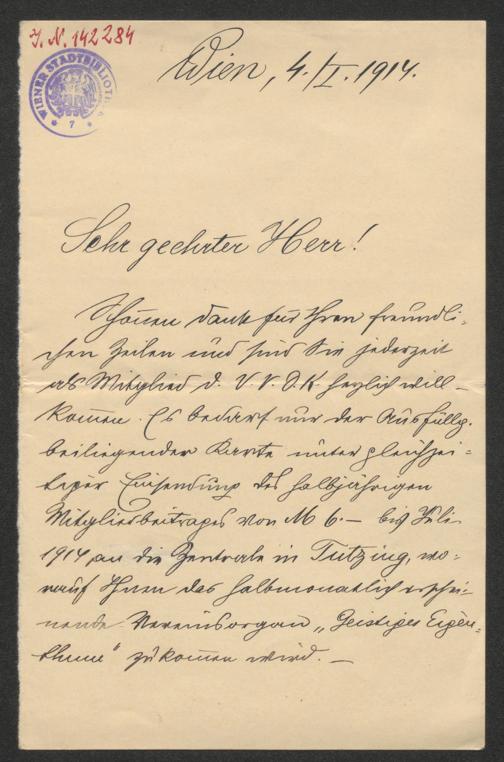 J. N. 142284
WIENER STADTBIBLIOTHEK
* 7 *
Wien, 4./I. 1914.
Sehr geehrter Herr!
Schönen Dank für Ihren freundli-
chen Zeilen und sind Sie jederzeit
als Mitglied d. V. V. D. K. herzlich will-
kommen. Es bedarf nur der Ausfüllg.
beiliegender Karte unter gleichzei-
tiger Einsendung des halbjährigen
Mitgliedsbeitrages von M 6.– bis Juli
1914 an die Zentrale in Tutzing, wo-
rauf Ihnen das halbmonatlich erschei-
nende Vereinsorgan „Geistiges Eigen-
thum" zukommen wird. –